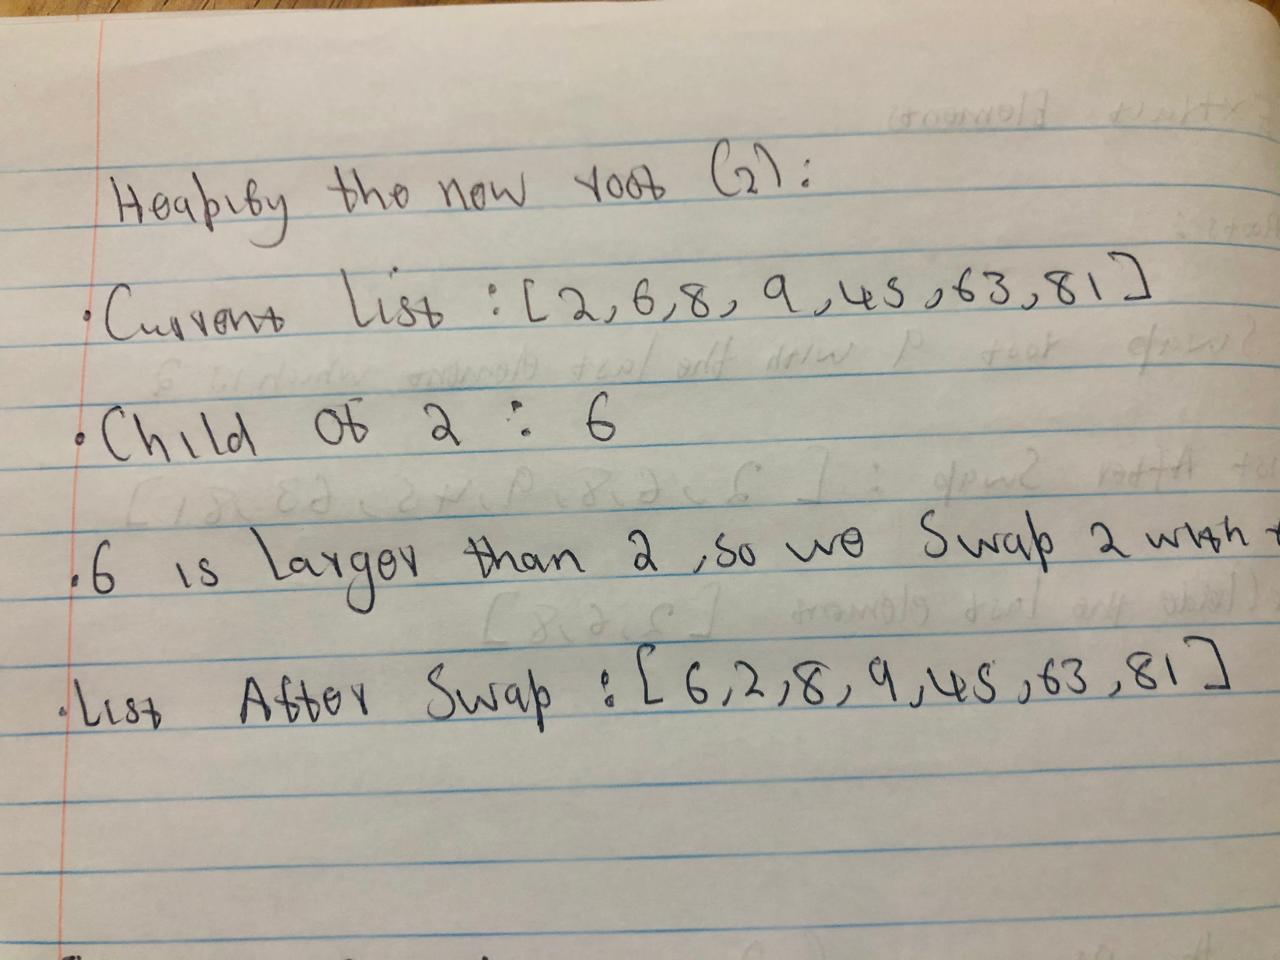 Heapify the new root (2):
• Current List : [2, 6, 8, 9, 45, 63, 81]
• Child of 2 : 6
• 6 is larger than 2, so we swap 2 with
• List After Swap : [6, 2, 8, 9, 45, 63, 81]